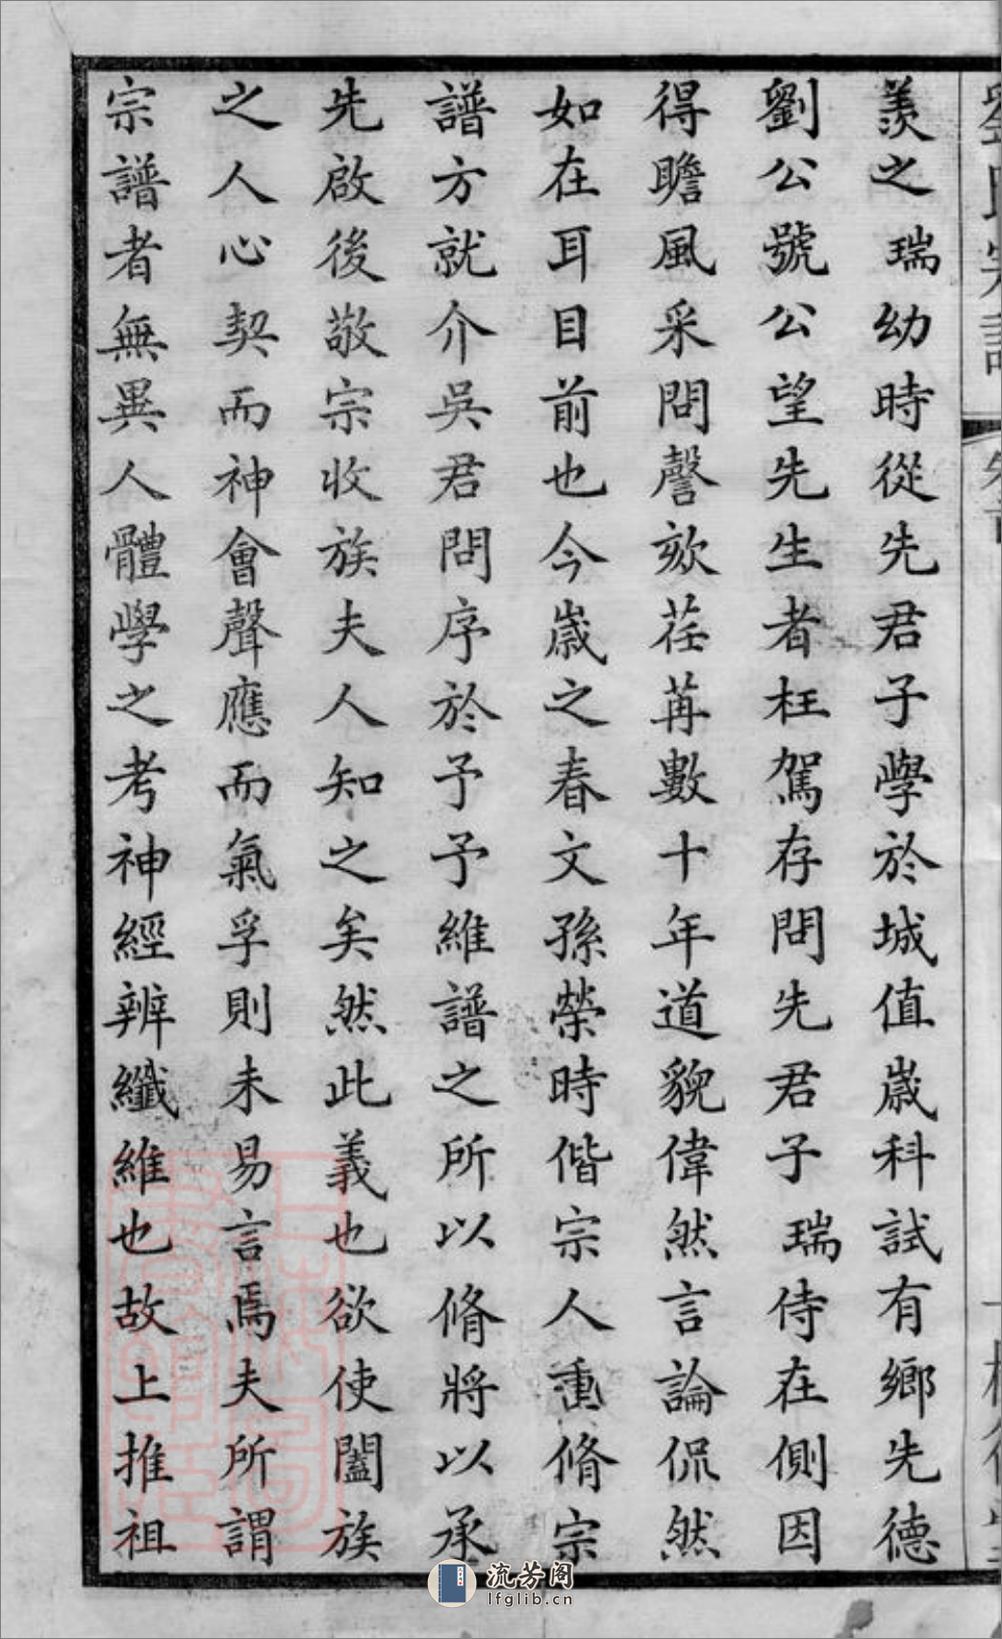 羨之瑞幼時從先君子學於城值嵗科試有鄉先德
劉公號公望先生者枉駕存問先君子瑞侍在側因
得瞻風采問謦欬荏苒數十年道貌偉然言論侃然
如在耳目前也今嵗之春文孫榮時偕宗人重脩宗
譜方就介吳君問序於予予維譜之所以脩將以承
先啟後敬宗收族夫人知之矣然此義也欲使闔族
之人心契而神會聲應而氣孚則未易言焉夫所謂
宗譜者無異人體學之考神經辨纖維也故上推祖
流芳阁
lfglib.cn